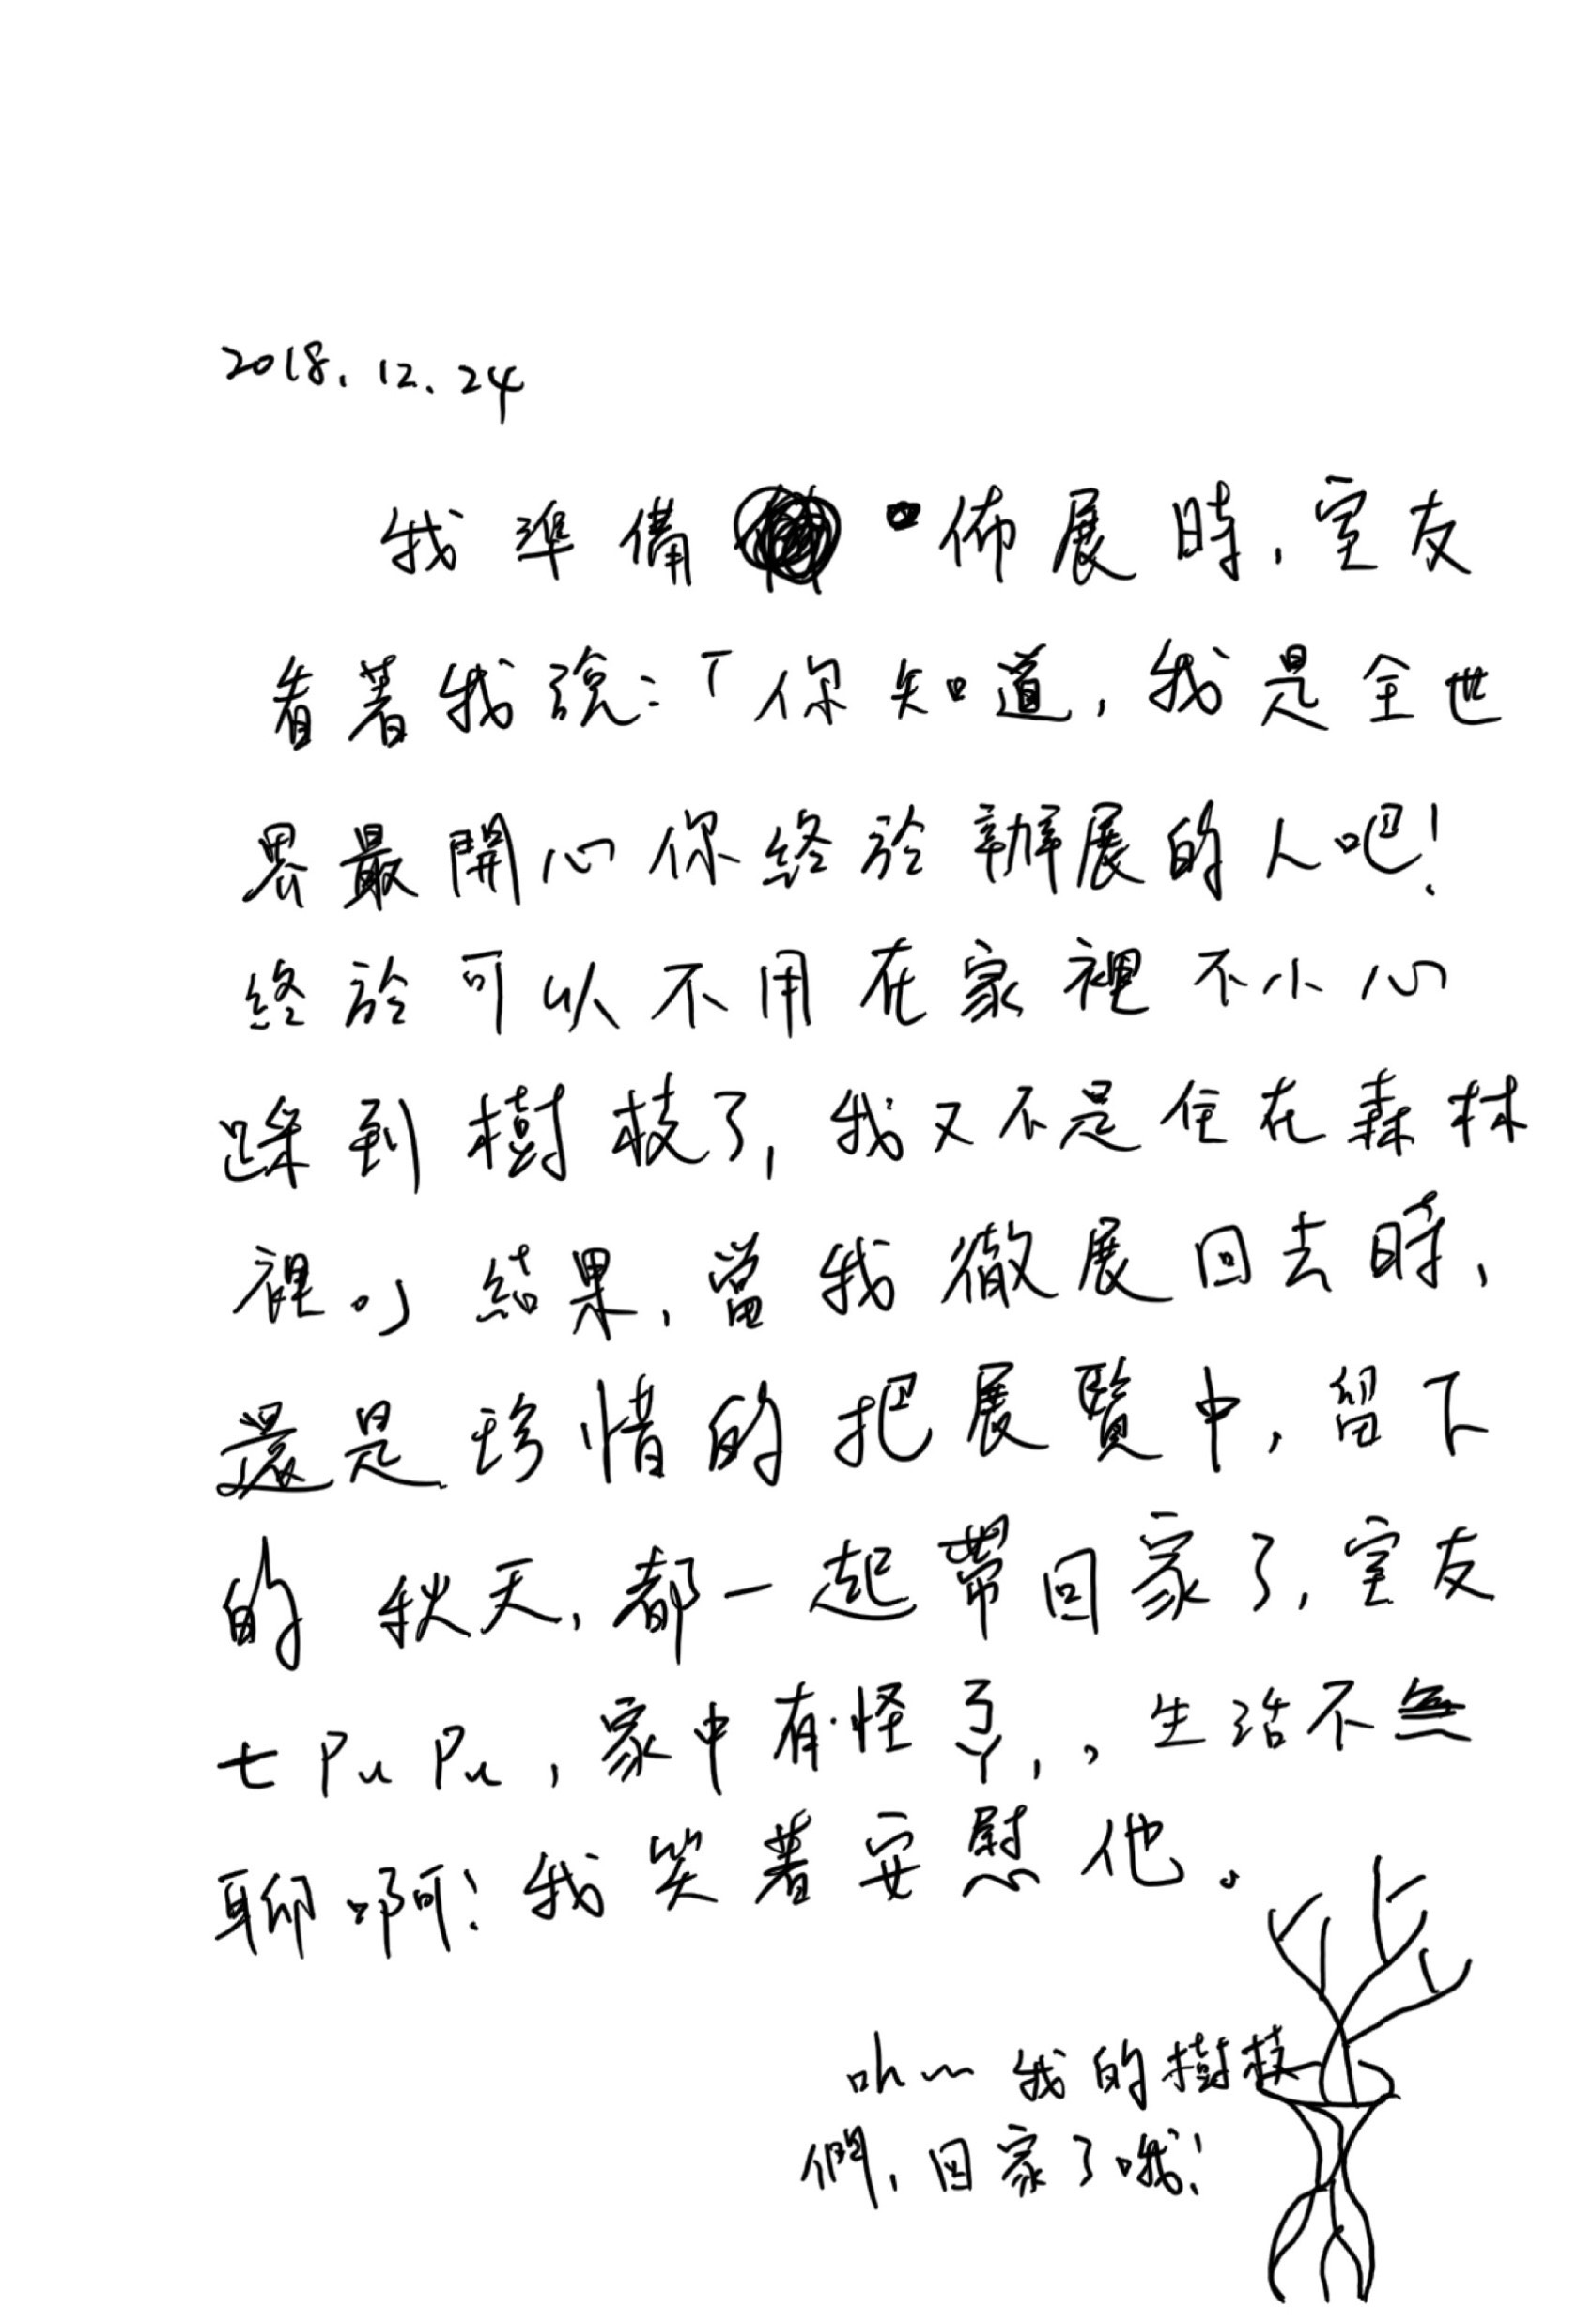 2018.12.24
我準備佈展時,室友
看著我說:「你知道,我是全世
界最開心你終於辦展的人吧!
終於可以不用在家裡不小心
踩到樹枝了,我又不是住在森林
裡。」結果,當我徹展回去時,
還是珍惜的把展覽中,留下
的秋天,都一起帶回家了,室友
七PuPu,家中有怪ㄋㄚ,,生活不無
聊啊!我笑著安慰他。
oh~我的樹枝
們,回家了哦!